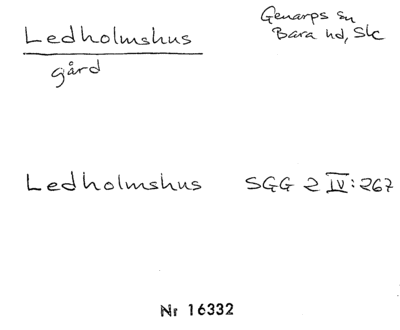 Ledholmshus
Genarps sn
Bara hd, Sk
gård
Ledholmshus SGG 2 IV:267
Nr 16332